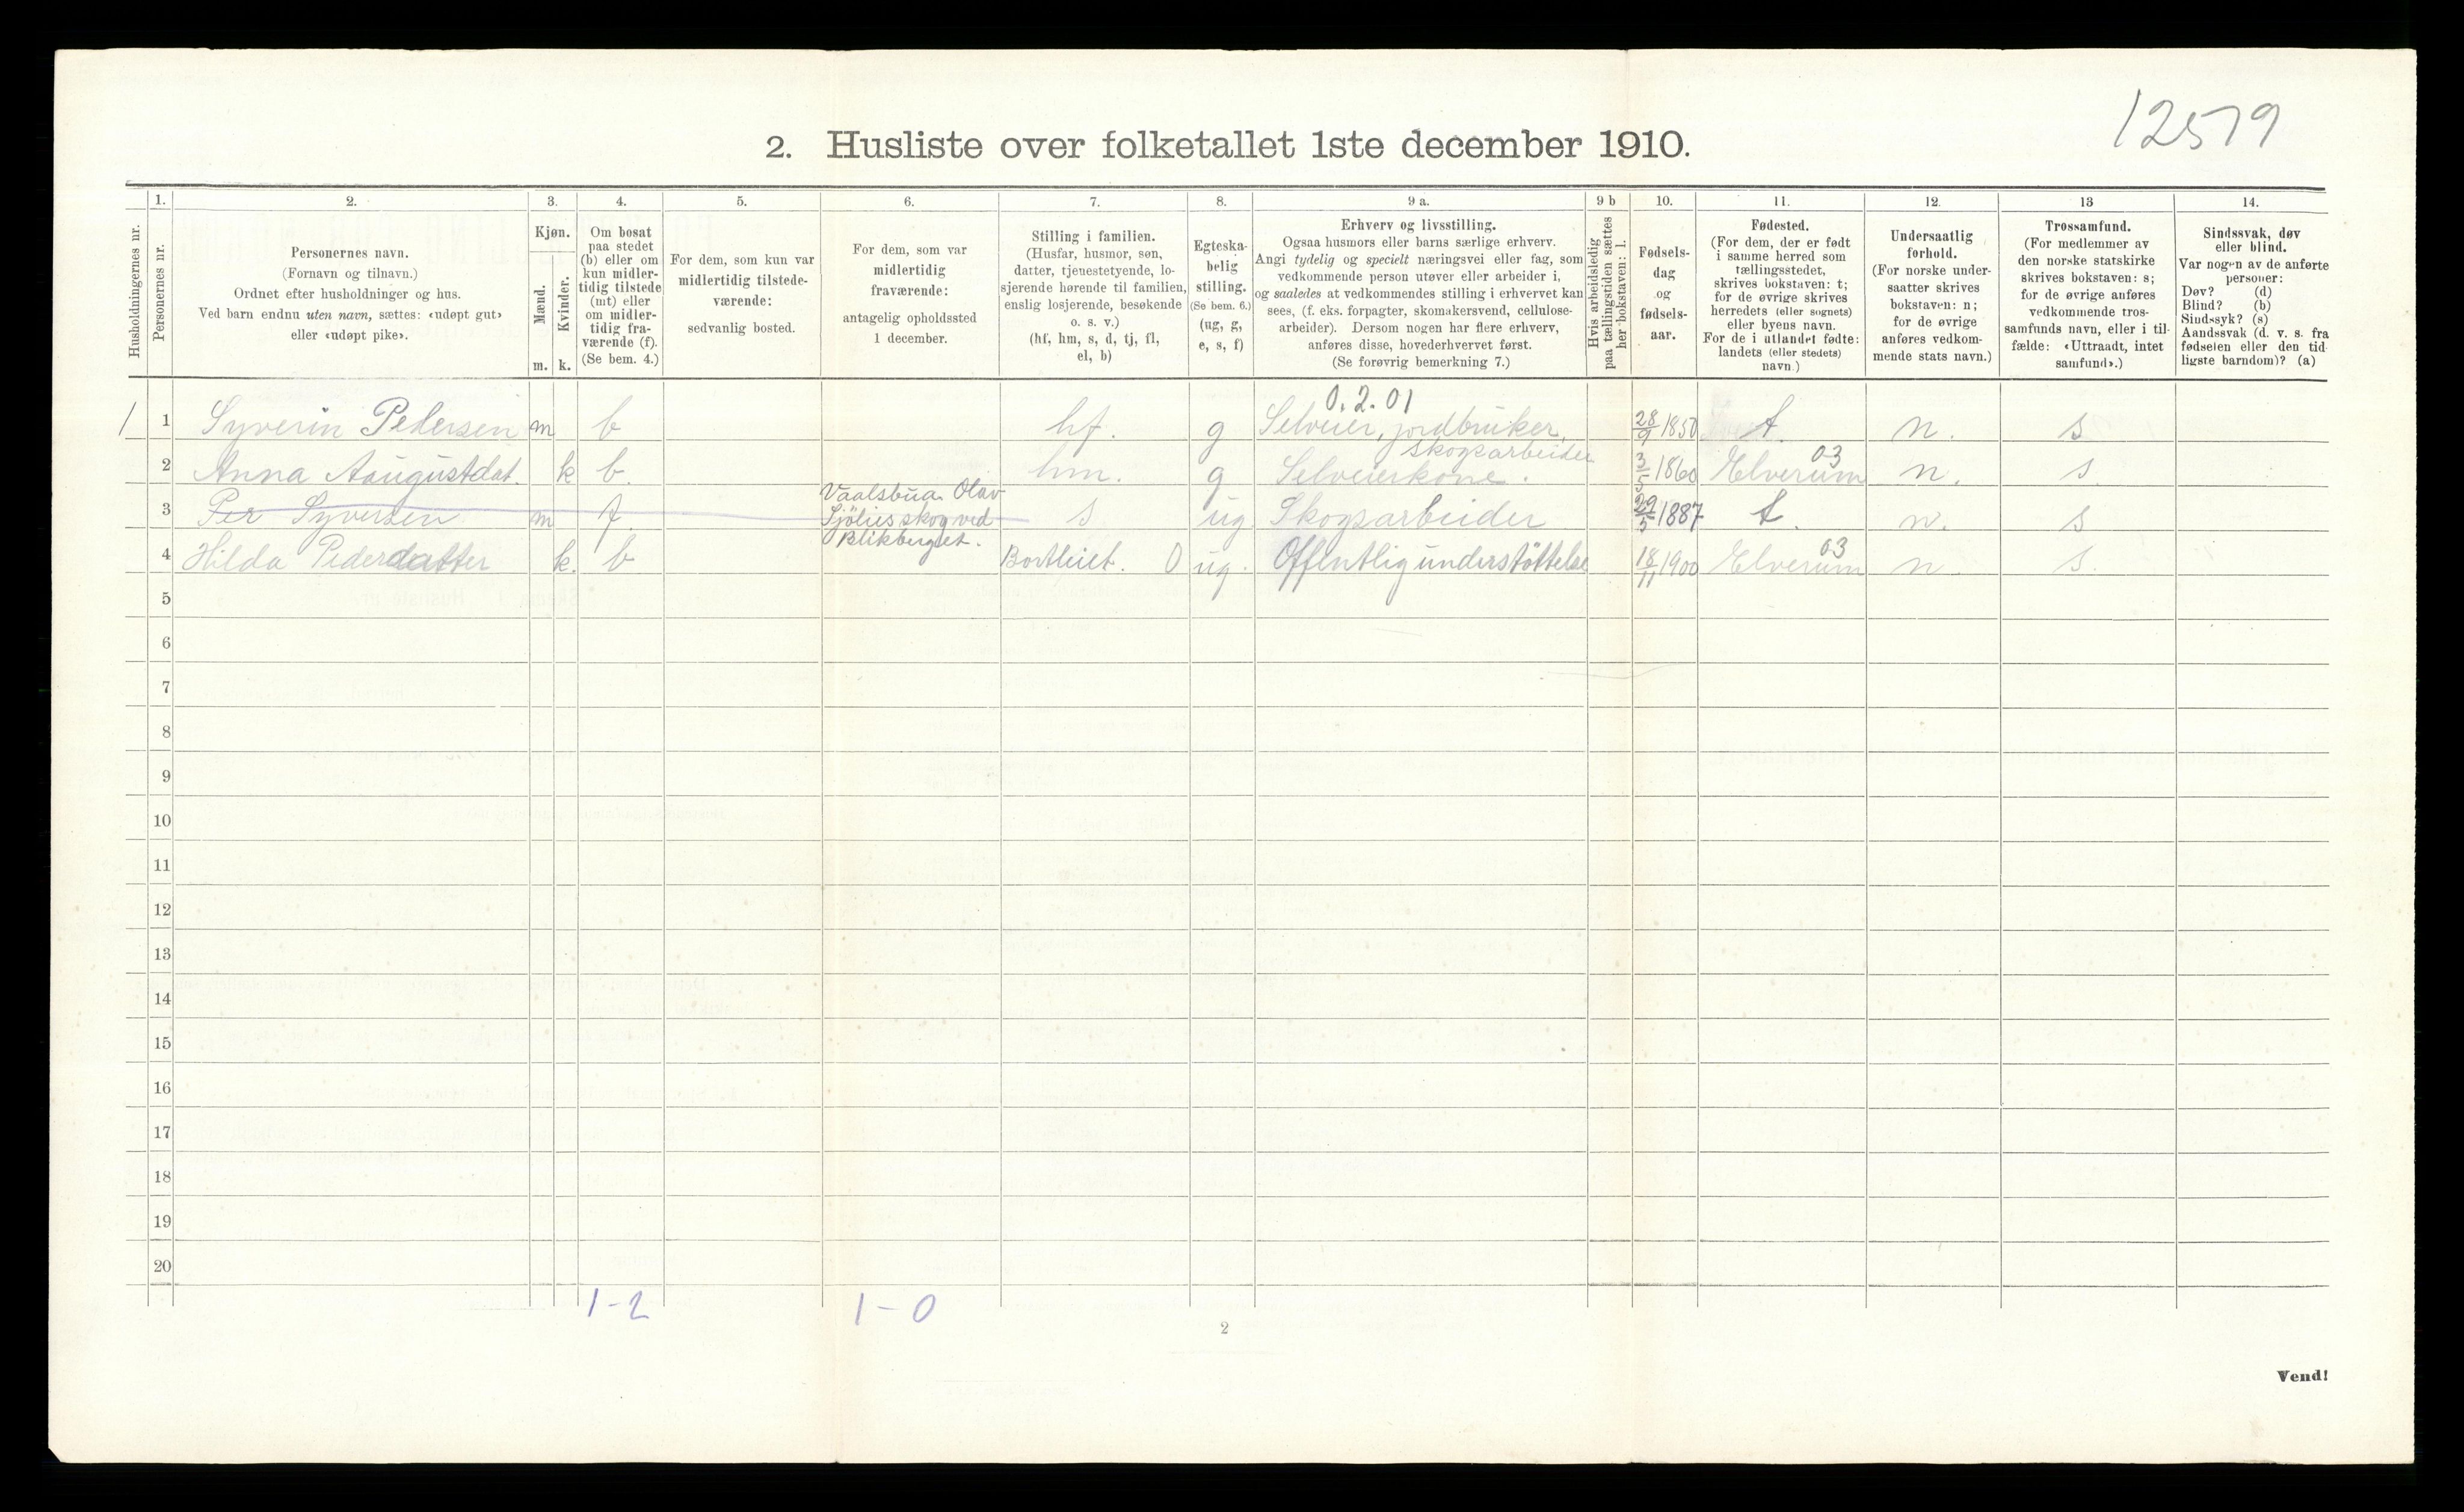 12579
2. Husliste over folketallet 1ste december 1910.
Husholdningernes nr.
1.
Personernes nr.
2.
Personernes navn.
(Fornavn og tilnavn.)
Ordnet efter husholdninger og hus.
Ved barn endnu uten navn, sættes: «udøpt gut»
eller «udøpt pike».
3.
Kjøn.
Mænd.
m.
Kvinder.
k.
4.
Om bosat
paa stedet
(b) eller om
kun midler-
tidig tilstede
(mt) eller
om midler-
tidig fra-
værende (f).
(Se bem. 4.)
5.
For dem, som kun var
midlertidig tilstede-
værende:
sedvanlig bosted.
6.
For dem, som var
midlertidig
fraværende:
antagelig opholdssted
1 december.
7.
Stilling i familien.
(Husfar, husmor, søn,
datter, tjenestetyende, lo-
sjerende hørende til familien,
enslig losjerende, besøkende
o. s. v.)
(hf, hm, s, d, tj, fl,
el, b)
8.
Egteska-
belig
stilling.
(Se bem. 6.)
(ug, g,
e, s, f)
9 a.
Erhverv og livsstilling.
Ogsaa husmors eller barns særlige erhverv.
Angi tydelig og specielt næringsvei eller fag, som
vedkommende person utøver eller arbeider i,
og saaledes at vedkommendes stilling i erhvervet kan
sees, (f. eks. forpagter, skomakersvend, cellulose-
arbeider). Dersom nogen har flere erhverv,
anføres disse, hovederhvervet først.
(Se forøvrig bemerkning 7.)
9 b
Hvis arbeidsledig
paa tællingstiden sættes
her bokstaven: l.
10.
Fødsels-
dag
og
fødsels-
aar.
11.
Fødested.
(For dem, der er født
i samme herred som
tællingsstedet,
skrives bokstaven: t;
for de øvrige skrives
herredets (eller sognets)
eller byens navn.
For de i utlandet fødte:
landets (eller stedets)
navn.)
12.
Undersaatlig
forhold.
(For norske under-
saatter skrives
bokstaven: n;
for de øvrige
anføres vedkom-
mende stats navn.)
13
Trossamfund.
(For medlemmer av
den norske statskirke
skrives bokstaven: s;
for de øvrige anføres
vedkommende tros-
samfunds navn, eller i til-
fælde: «Uttraadt, intet
samfund».)
14.
Sindssvak, døv
eller blind.
Var nogen av de anførte
personer:
Døv? (d)
Blind? (b)
Sindssyk? (s)
Aandssvak (d. v. s. fra
fødselen eller den tid-
ligste barndom)? (a)
0.2.01
1 1 Syverin Pedersen m b hf. g Selveier, jordbruker, skogsarbeider 28/9 1850 t. n. s
2 Anna Aaugustdat. k b. hm. g Selveierkone. 3/5 1860 Elverum 03 n. s.
3 Per Syversen m f. Vaalsbua Olav Sjölies skog ved Blikberget. s ug Skogsarbeider 29/5 1887 t. n. s
4 Hilda Pederdatter k. b Bortleiet. 0 ug. Offentlig understöttelse 18/11 1900 Elverum 03 n. s.
5
6
7
8
9
10
11
12
13
14
15
16
17
18
19
20
1-2 1-0
2
Vend!